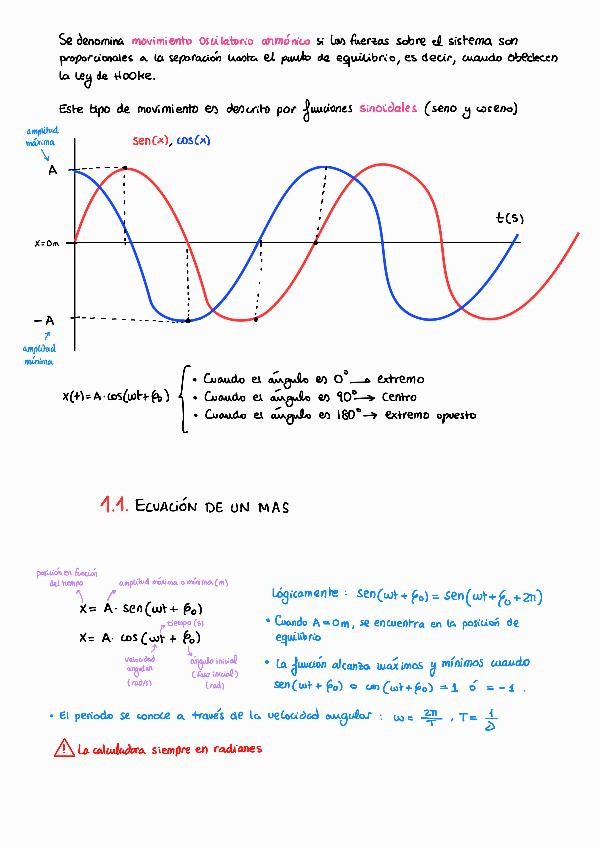 Se denomina movimiento oscilatorio armónico si las fuerzas sobre el sistema son
proporcionales a la separación hasta el punto de equilibrio, es decir, cuando obedecen
la Ley de Hooke.
Este tipo de movimiento es descrito por funciones sinoidales (seno y coseno)
amplitud
máxima
sen(x), cos(x)
A
t(s)
x=0m
-A
amplitud
mínima
x(t)=A·cos(ωt+φ₀)
• Cuando el ángulo es 0° → extremo
• Cuando el ángulo es 90° → centro
• Cuando el ángulo es 180° → extremo opuesto
1.1. ECUACIÓN DE UN MAS
posición en función
del tiempo
amplitud máxima o mínima (m)
x = A · sen(ωt + φ₀)
tiempo (s)
x = A · cos(ωt + φ₀)
velocidad
angular
(rad/s)
ángulo inicial
(fase inicial)
(rad)
Lógicamente: sen(ωt+φ₀) = sen(ωt+φ₀+2π)
• Cuando A=0m, se encuentra en la posición de
equilibrio
• La función alcanza máximos y mínimos cuando
sen(ωt+φ₀) o cos(ωt+φ₀) = 1 ó = -1.
• El periodo se conoce a través de la velocidad angular: ω = 2π/T, T = 1/ν
⚠ La calculadora siempre en radianes